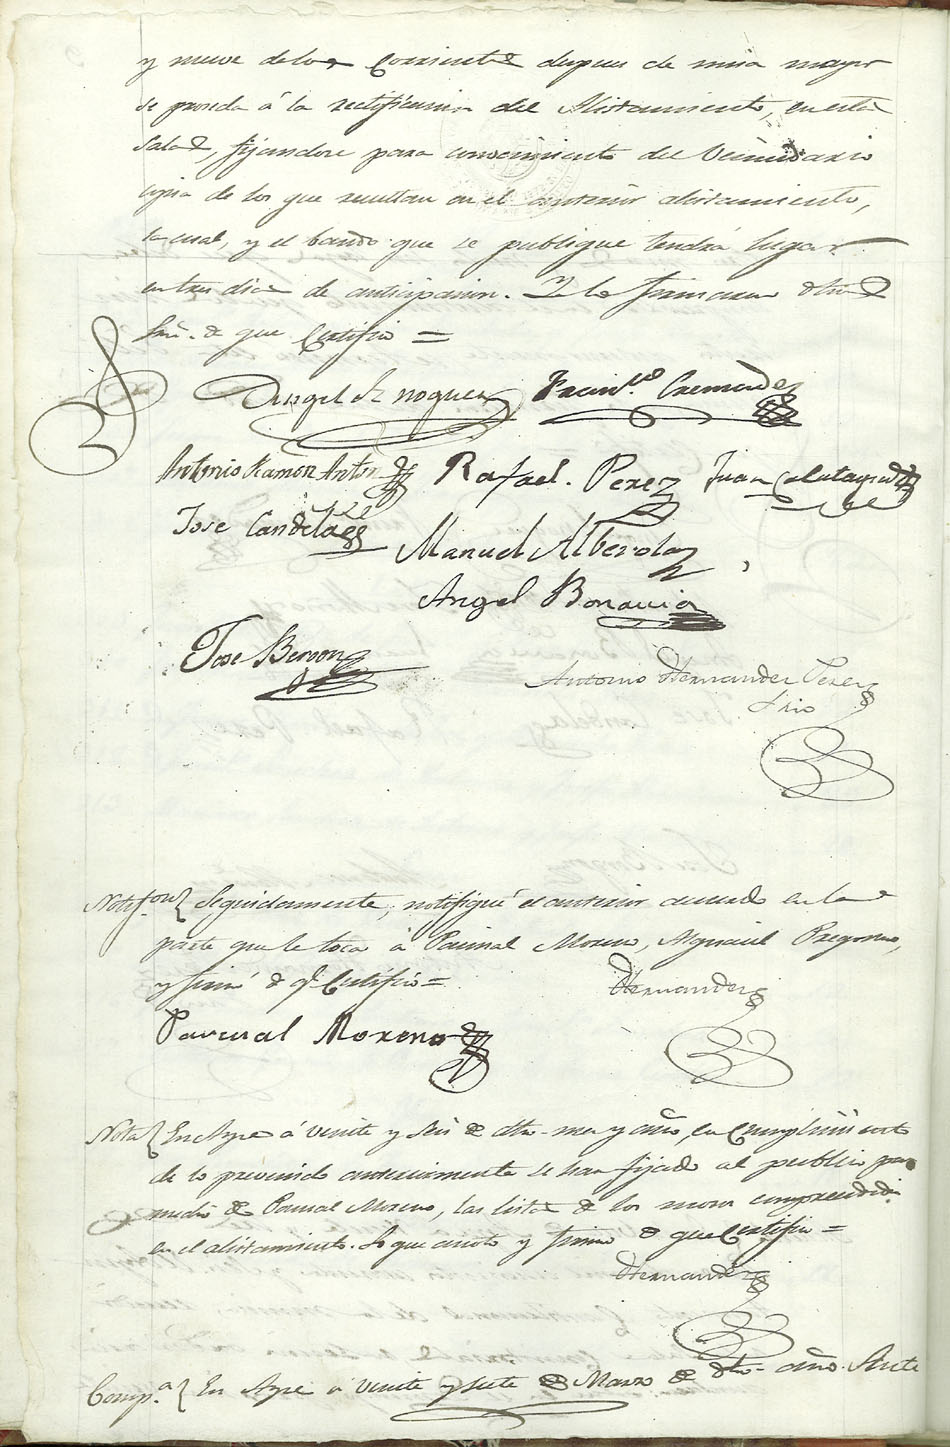 y nueve de los corrientes despues de misa mayor
se proseda á la rectificasion del Alistamiento, en esta
Sala, fijandose para conocimiento del Vecindario
copia de los que resultan en el anterior alistamiento,
la cual, y el bando que se publique tendrá lugar
con tres dias de anticipacion. Y lo firmaran dhos
Srs. de que Certifico =
Angel Franco Cremades
Antonio Ramon Anton Rafael. Perez Juan Calatayud
Jose Candela
Manuel Alberola
Angel Bonavia
Jose Berson
Antonio Hernandez Perez
Srio
Notifon. Seguidamente, notifiqué el anterior acuerdo en la
parte que le toca á Pascual Moreno, Alguacil Pregonero,
y firmó de q. Certifico =
Hernandez
Pascual Moreno
Nota En Aspe á veinte y seis de dho. mes y año, en Cumplimiento
de lo prevenido anteriormente se han fijado al publico por
medio de Pascual Moreno, las listas de los mozos comprendidos
en el alistamiento. Lo que anoto y firmo de que Certifico =
Hernandez
Compa. En Aspe á veinte y siete de Marzo de dho. año. Ante